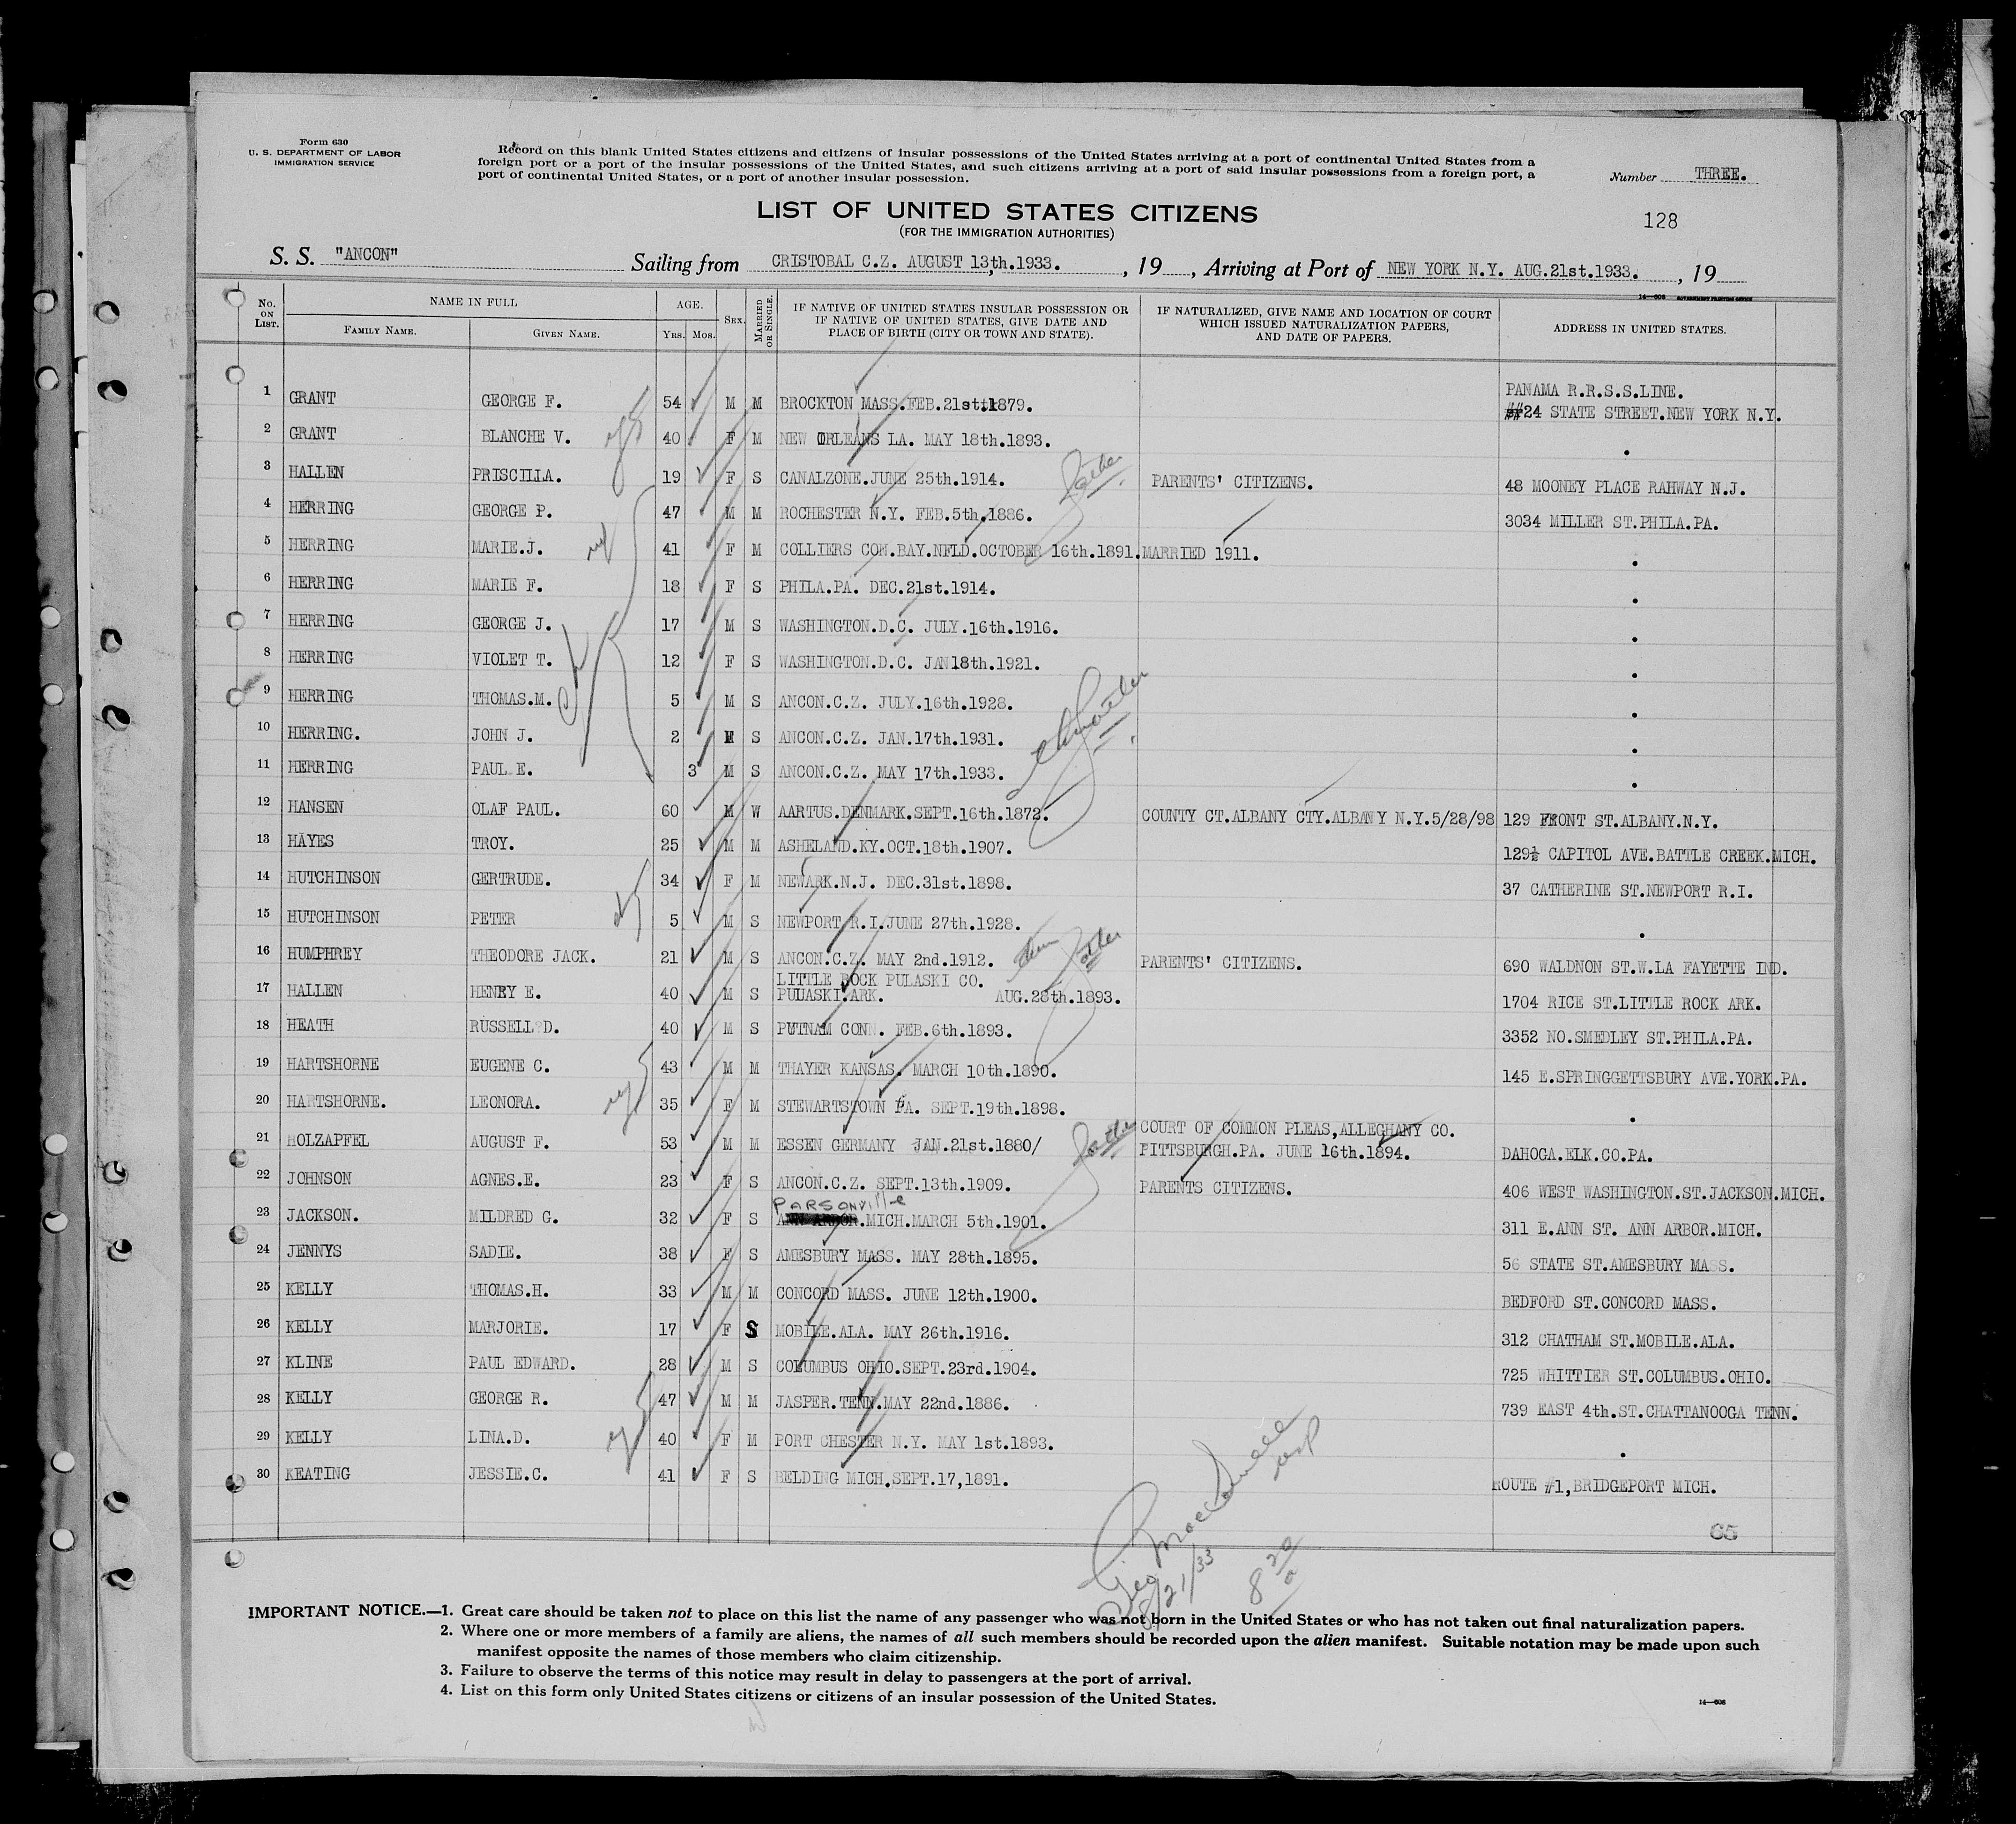 Form 630
U. S. DEPARTMENT OF LABOR
IMMIGRATION SERVICE
Record on this blank United States citizens and citizens of insular possessions of the United States arriving at a port of continental United States from a
foreign port or a port of the insular possessions of the United States, and such citizens arriving at a port of said insular possessions from a foreign port, a
port of continental United States, or a port of another insular possession.
Number THREE.
128
LIST OF UNITED STATES CITIZENS
(FOR THE IMMIGRATION AUTHORITIES)
S. S. "ANCON" Sailing from CRISTOBAL C.Z. AUGUST 13th.1933. , 19 , Arriving at Port of NEW YORK N.Y. AUG.21st.1933. , 19
No. ON LIST. NAME IN FULL FAMILY NAME. GIVEN NAME. AGE. Yrs. Mos. SEX. MARRIED OR SINGLE. IF NATIVE OF UNITED STATES INSULAR POSSESSION OR IF NATIVE OF UNITED STATES, GIVE DATE AND PLACE OF BIRTH (CITY OR TOWN AND STATE). IF NATURALIZED, GIVE NAME AND LOCATION OF COURT WHICH ISSUED NATURALIZATION PAPERS, AND DATE OF PAPERS. ADDRESS IN UNITED STATES.
PANAMA R.R.S.S.LINE.
1 GRANT GEORGE F. 54 M M BROCKTON MASS.FEB.21st.1879. ##24 STATE STREET.NEW YORK N.Y.
2 GRANT BLANCHE V. 40 F M NEW ORLEANS LA. MAY 18th.1893. .
3 HALLEN PRISCILLA. 19 F S CANALZONE.JUNE 25th.1914. PARENTS' CITIZENS. 48 MOONEY PLACE RAHWAY N.J.
4 HERRING GEORGE P. 47 M M ROCHESTER N.Y. FEB.5th.1886. 3034 MILLER ST.PHILA.PA.
5 HERRING MARIE.J. 41 F M COLLIERS CON.BAY.NFLD.OCTOBER 16th.1891. MARRIED 1911. .
6 HERRING MARIE F. 18 F S PHILA.PA. DEC.21st.1914. .
7 HERRING GEORGE J. 17 M S WASHINGTON.D.C. JULY.16th.1916. .
8 HERRING VIOLET T. 12 F S WASHINGTON.D.C. JAN18th.1921. .
9 HERRING THOMAS.M. 5 M S ANCON.C.Z. JULY.16th.1928. .
10 HERRING. JOHN J. 2 M S ANCON.C.Z. JAN.17th.1931. .
11 HERRING PAUL E. 3 M S ANCON.C.Z. MAY 17th.1933. .
12 HANSEN OLAF PAUL. 60 M W AARTUS.DENMARK.SEPT.16th.1872. COUNTY CT.ALBANY CTY.ALBANY N.Y.5/28/98 129 FRONT ST.ALBANY.N.Y.
13 HAYES TROY. 25 M M ASHELAND.KY.OCT.18th.1907. 129½ CAPITOL AVE.BATTLE CREEK.MICH.
14 HUTCHINSON GERTRUDE. 34 F M NEWARK.N.J. DEC.31st.1898. 37 CATHERINE ST.NEWPORT R.I.
15 HUTCHINSON PETER 5 M S NEWPORT R.I.JUNE 27th.1928. .
16 HUMPHREY THEODORE JACK. 21 M S ANCON.C.Z. MAY 2nd.1912. PARENTS' CITIZENS. 690 WALDNON ST.W.LA FAYETTE IND.
LITTLE ROCK PULASKI CO.
17 HALLEN HENRY E. 40 M S PULASKI.ARK. AUG.28th.1893. 1704 RICE ST.LITTLE ROCK ARK.
18 HEATH RUSSELL D. 40 M S PUTNAM CONN. FEB.6th.1893. 3352 NO.SMEDLEY ST.PHILA.PA.
19 HARTSHORNE EUGENE C. 43 M M THAYER KANSAS. MARCH 10th.1890. 145 E.SPRINGGETTSBURY AVE.YORK.PA.
20 HARTSHORNE. LEONORA. 35 F M STEWARTSTOWN PA. SEPT.19th.1898. .
COURT OF COMMON PLEAS,ALLEGHANY CO.
21 HOLZAPFEL AUGUST F. 53 M M ESSEN GERMANY JAN.21st.1880/ PITTSBURGH.PA. JUNE 16th.1894. DAHOGA.ELK.CO.PA.
22 JOHNSON AGNES.E. 23 F S ANCON.C.Z. SEPT.13th.1909. PARENTS CITIZENS. 406 WEST WASHINGTON.ST.JACKSON.MICH.
PARSONVILLE
23 JACKSON. MILDRED G. 32 F S ANN ARBOR.MICH.MARCH 5th.1901. 311 E.ANN ST. ANN ARBOR.MICH.
24 JENNYS SADIE. 38 F S AMESBURY MASS. MAY 28th.1895. 56 STATE ST.AMESBURY MASS.
25 KELLY THOMAS.H. 33 M M CONCORD MASS. JUNE 12th.1900. BEDFORD ST.CONCORD MASS.
26 KELLY MARJORIE. 17 F S MOBILE.ALA. MAY 26th.1916. 312 CHATHAM ST.MOBILE.ALA.
27 KLINE PAUL EDWARD. 28 M S COLUMBUS OHIO.SEPT.23rd.1904. 725 WHITTIER ST.COLUMBUS.OHIO.
28 KELLY GEORGE R. 47 M M JASPER.TENN.MAY 22nd.1886. 739 EAST 4th.ST.CHATTANOOGA TENN.
29 KELLY LINA.D. 40 F M PORT CHESTER N.Y. MAY 1st.1893. .
30 KEATING JESSIE.C. 41 F S BELDING MICH.SEPT.17,1891. ROUTE #1,BRIDGEPORT MICH.
65
8/21/33
IMPORTANT NOTICE.—1. Great care should be taken not to place on this list the name of any passenger who was not born in the United States or who has not taken out final naturalization papers.
2. Where one or more members of a family are aliens, the names of all such members should be recorded upon the alien manifest. Suitable notation may be made upon such
manifest opposite the names of those members who claim citizenship.
3. Failure to observe the terms of this notice may result in delay to passengers at the port of arrival.
4. List on this form only United States citizens or citizens of an insular possession of the United States.
14—608